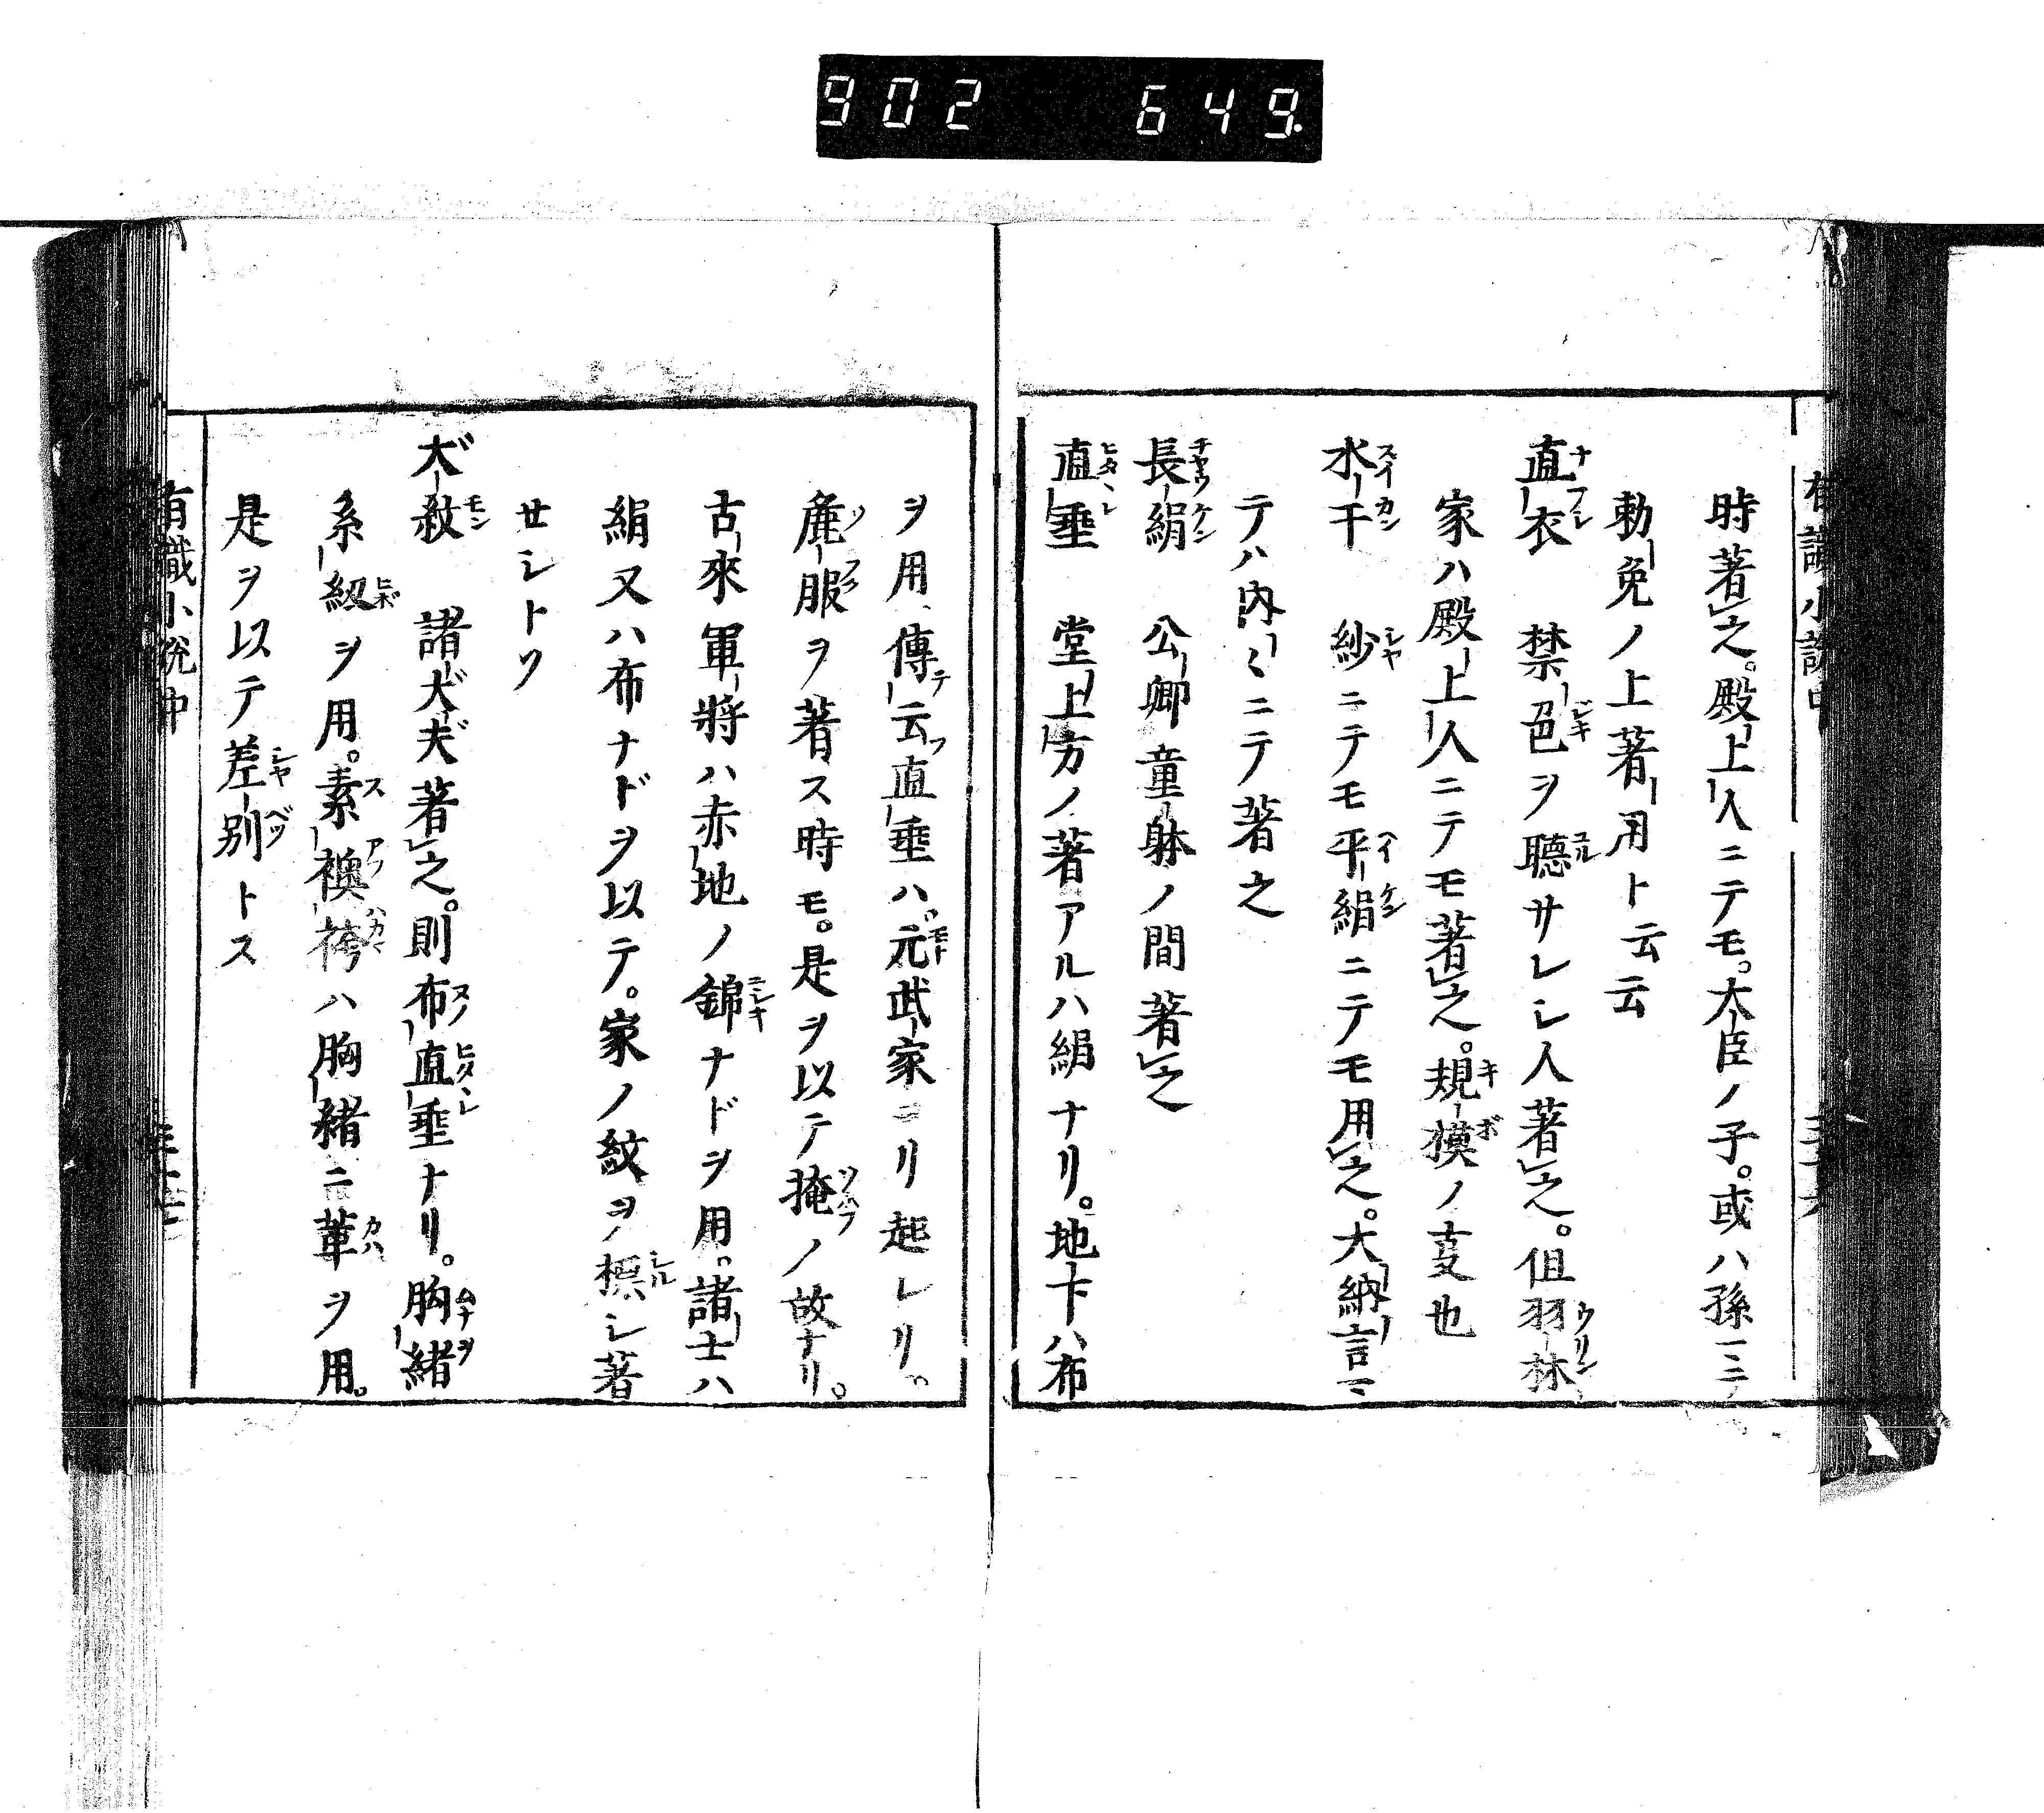 902 649
時著之。殿上人ニテモ。大臣ノ子。或ハ孫ニ
勅免ノ上著用ト云云
直衣 禁色ヲ聽サレシ人著之。但羽林
家ハ殿上人ニテモ著之。規模ノ叓也
水干 紗ニテモ平絹ニテモ用之。大納言ニ
テハ内〻ニテ著之
長絹 公卿童躰ノ間著之
直垂 堂上方ノ著アルハ絹ナリ。地下ハ布
ヲ用、傳云直垂ハ。元武家ヨリ起レリ。
麁服ヲ著ス時モ。是ヲ以テ掩ノ故ナリ。
古來軍將ハ赤地ノ錦ナドヲ用。諸士ハ
絹又ハ布ナドヲ以テ。家ノ紋ヲ標シ著
セシトソ
大紋 諸大夫著之。則布直垂ナリ。胸緒
糸紐ヲ用。素襖袴ハ胸緒ニ革ヲ用。
是ヲ以テ差別トス
有職小説中